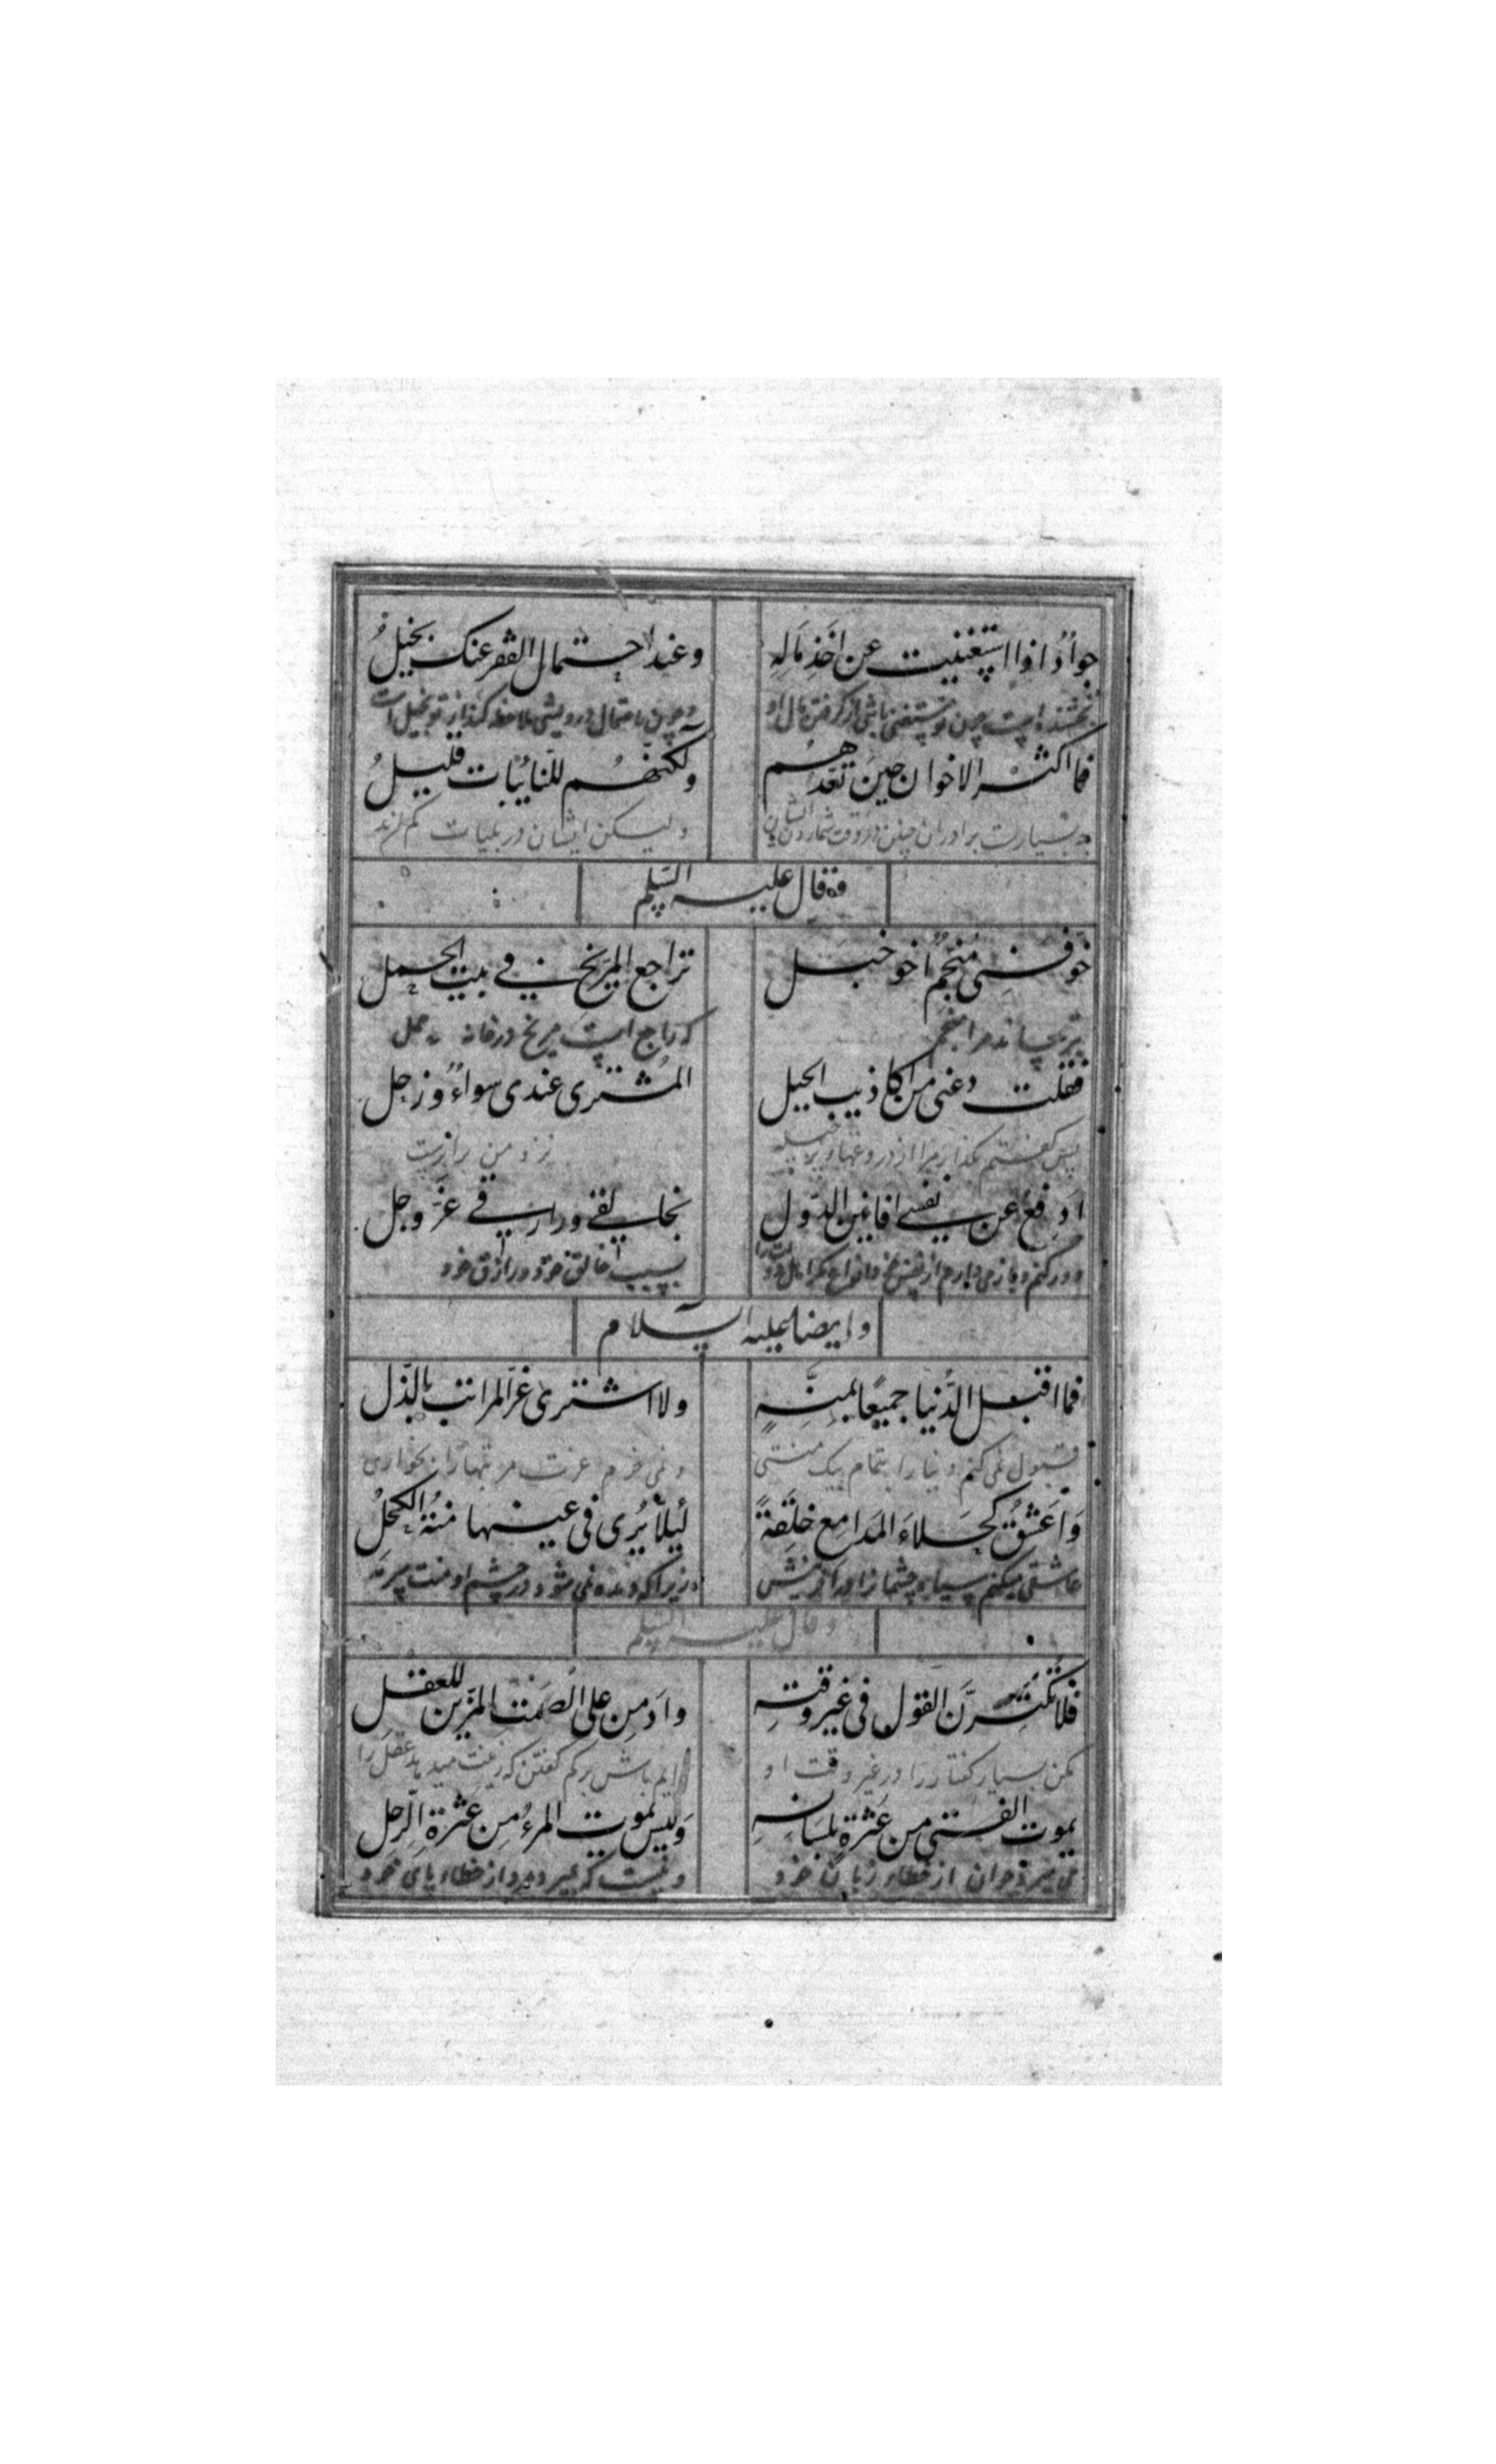 جوادٌ اذا استغنیت عن اخذ مَالِهِ وعند احتمال الفقر عنک بخیلُ
بخشنده است چون تو مستغنی باشی از گرفتن مال او و چون باحتمال درویشی ملاحظه کند از تو بخیل است
فما اکثر الاخوان حین تعدّهم ولکنهم للنائبات قلیلُ
چه بسیارست برادران چنین در وقت شماردن ایشان ولیکن ایشان در بلیات کم‌ترند
قال علیه السلم
خوّفنی منجمٌ اخو خبل تراجع المریخ فی بیت الحمل
بترسانید مرا منجم که راجع است مریخ در خانه حمل
فقلت دعنی من اکاذیب الحیل المشتری عندی سواءٌ وزحل
پس گفتم بگذار مرا از دروغها و پر حیله نزد من برابرست
ادفع عن نفسی افانین الدول بخالقی ورازقی عزّ وجل
بسبب خالق خود و رازق خود
وایضا علیه السلام
فما اقبل الدُّنیا جمیعًا بمنّةٍ ولا اشتری عزّ المراتب بالذّل
قبول نمی کنم دنیا را بتمام بیک منتی و نمی خرم عزت مرتبها را بخواری
وَاَعشقُ کحلاءَ المدامع خلقةً لئلا یُری فی عینها منّةُ الکحل
عاشقی میکنم سیاه چشمانرا در آفرینش زیرا که دیده نمی شود در چشم او منت سرمه
وقال علیه السلم
فلا تکثرنَّ القول فی غیر وقته وادمن علی الصمت المزین للعقل
مکن بسیار گفتار را در غیر وقت او دایم باش بر کم گفتن که زینت میدهد عقل را
یموت الفتی من عثرةٍ بلسانِهِ ولیس یموت المرءُ من عثرة الرِجل
می میرد جوان از خطاء زبان خود و نیست که بمیرد مرد از خطاء پای خود